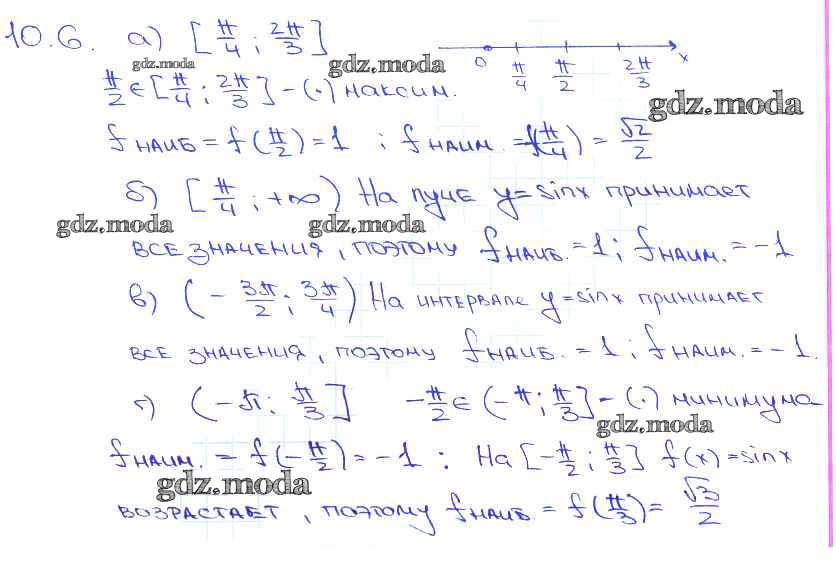 10.6. а) [π/4 ; 2π/3]
0 π/4 π/2 2π/3 x
gdz.moda gdz.moda
π/2 ∈ [π/4 ; 2π/3] – (·) максим.
gdz.moda
fнаиб = f(π/2) = 1 ; fнаим. = f(π/4) = √2/2
б) [π/4 ; +∞) На луче y = sinx принимает
gdz.moda gdz.moda
все значения, поэтому fнаиб. = 1 ; fнаим. = -1
в) (- 3π/2 ; 3π/4) На интервале y = sinx принимает
все значения, поэтому fнаиб. = 1 ; fнаим. = -1.
г) (-π ; π/3] -π/2 ∈ (-π ; π/3] – (·) минимума
gdz.moda
fнаим. = f(-π/2) = -1 ; На [-π/2 ; π/3] f(x) = sinx
gdz.moda
возрастает, поэтому fнаиб. = f(π/3) = √3/2